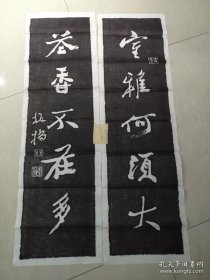 室雅何须大
花香不在多
板桥
孔夫子旧书网